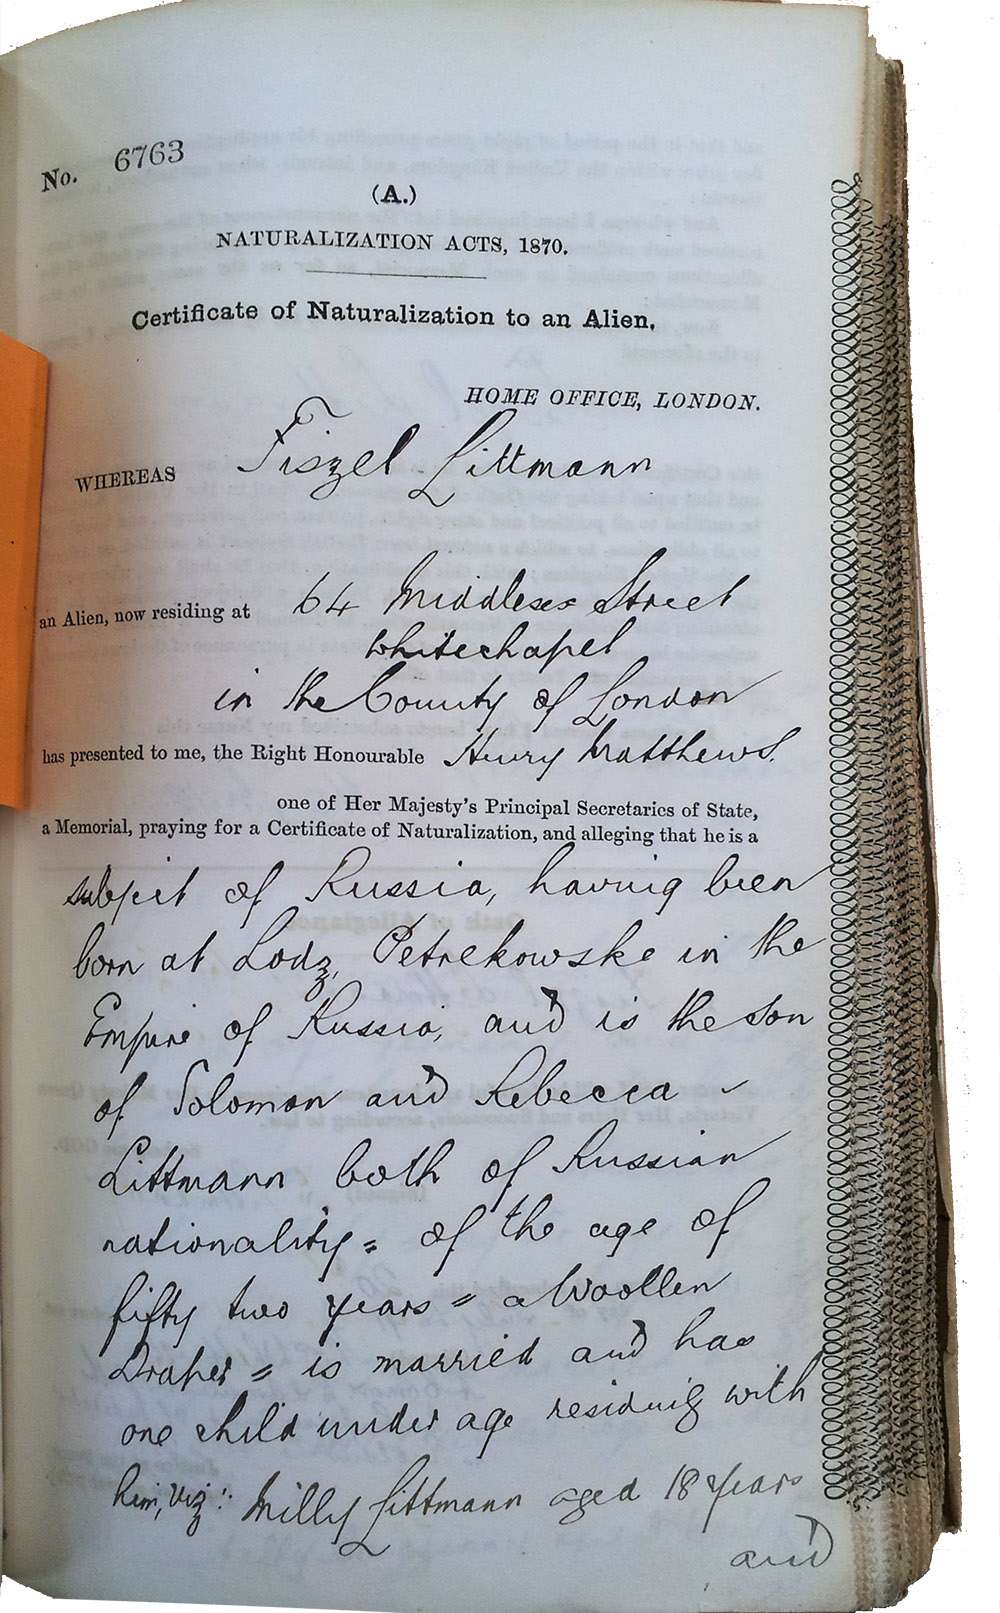 No. 6763
(A.)
NATURALIZATION ACTS, 1870.
Certificate of Naturalization to an Alien.
HOME OFFICE, LONDON.
WHEREAS Fiszel Littmann
an Alien, now residing at 64 Middlesex Street
Whitechapel
in the County of London
has presented to me, the Right Honourable Henry Matthews.
one of Her Majesty's Principal Secretaries of State,
a Memorial, praying for a Certificate of Naturalization, and alleging that he is a
subject of Russia, having been
born at Lodz, Petrekowske in the
Empire of Russia, and is the son
of Solomon and Rebecca -
Littmann both of Russian
nationality = of the age of
fifty two years = a Woollen
Draper = is married and has
one child under age residing with
him, viz: Milly Littmann aged 18 Years
and